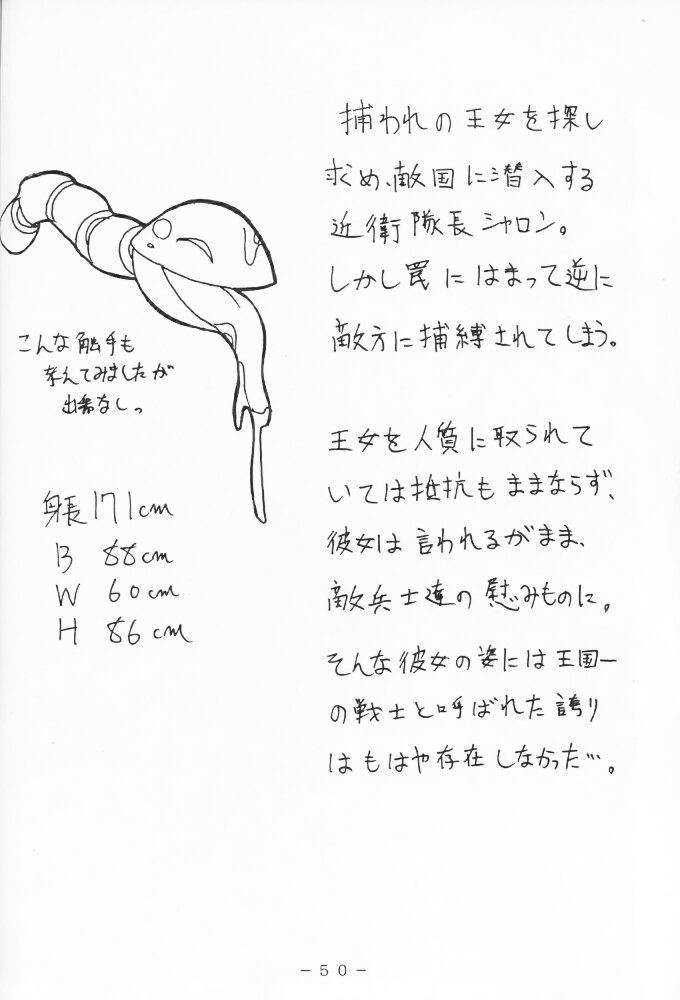 捕われの王女を探し
求め、敵国に潜入する
近衛隊長シャロン。
しかし罠にはまって逆に
敵方に捕縛されてしまう。
王女を人質に取られて
いては抵抗もままならず、
彼女は言われるがまま、
敵兵士達の慰みものに。
そんな彼女の姿には王国一
の戦士と呼ばれた誇り
はもはや存在しなかった…。
こんな触手も
考えてみましたが
出番なしっ
身長171cm
B 88cm
W 60cm
H 86cm
-50-